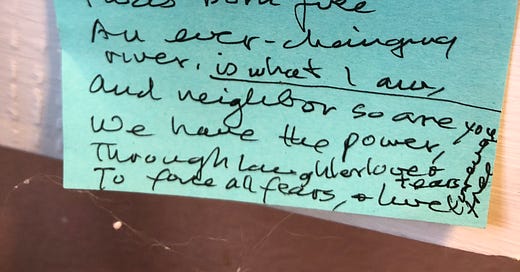 I was born free
An ever-changing
river, is what I am,
and neighbor so are you
We have the power,
Through laughter love & tears
To face all fears, &